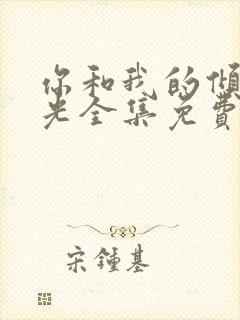 你和我的倾
光全集免费
宋鍾基